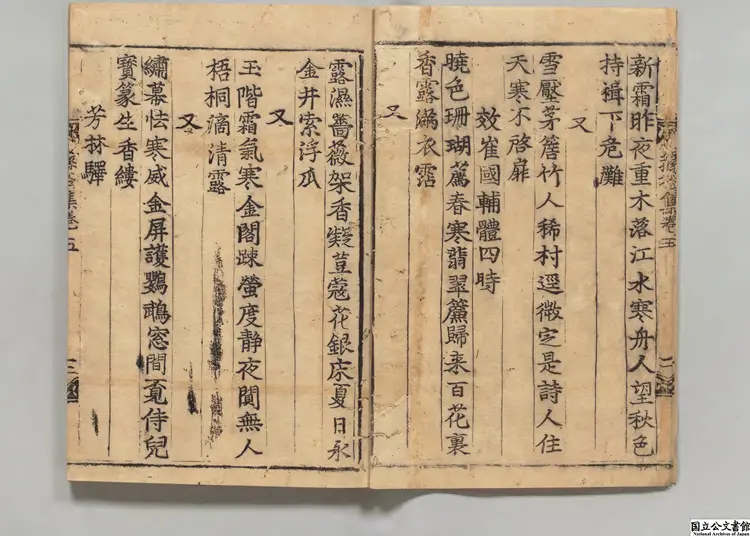 新霜昨夜重木落江水寒舟人望秋色
持揖下危灘
又
雪壓茅簷竹人稀村逕微定是詩人住
天寒不啓扉
效崔國輔體四時
曉色珊瑚薦春寒翡翠簾歸来百花裏
香露滿衣霑
又
露濕薔薇架香凝荳蔻花銀床夏日永
金井索浮瓜
又
玉階霜氣寒金閣踈螢度靜夜閴無人
梧桐滴清露
又
繡幕怯寒威金屏護鸚鵡窓間覔侍兒
寶篆生香縷
芳菻驛
集卷五
国立公文書館
National Archives of Japan